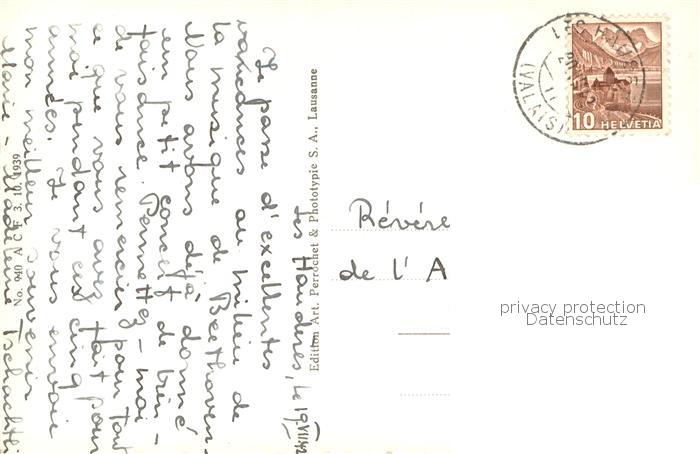 Les Haudères, le 19.VII.42
Je passe d'excellentes
vacances au milieu de
la musique de Beethoven.
Nous avons déjà donné
un petit concert de bien-
faisance. Permettez-moi
de vous remercier pour tout
ce que vous avez fait pour
moi pendant ces cinq
années. Je vous envoie
mon meilleur souvenir
Marie-Madeleine Tschachtli
No. 940 A C F 3. 10. 1939
Edition Art. Perrochet & Phototypie S. A., Lausanne
LES HAUDÈRES
(VALAIS)
10 HELVETIA
Révére
de l'A
privacy protection
Datenschutz